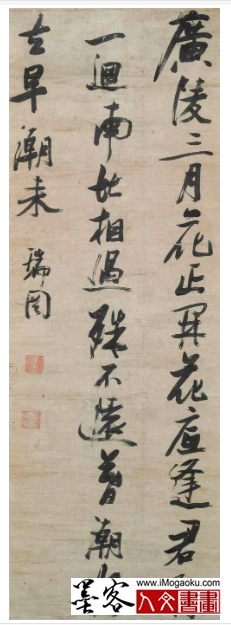 廣陵三月花正開花逢君
一迴南北相過殊不遠暮潮
去早潮来
瑞圖
www.iMogaoku.com
墨客人文書畫